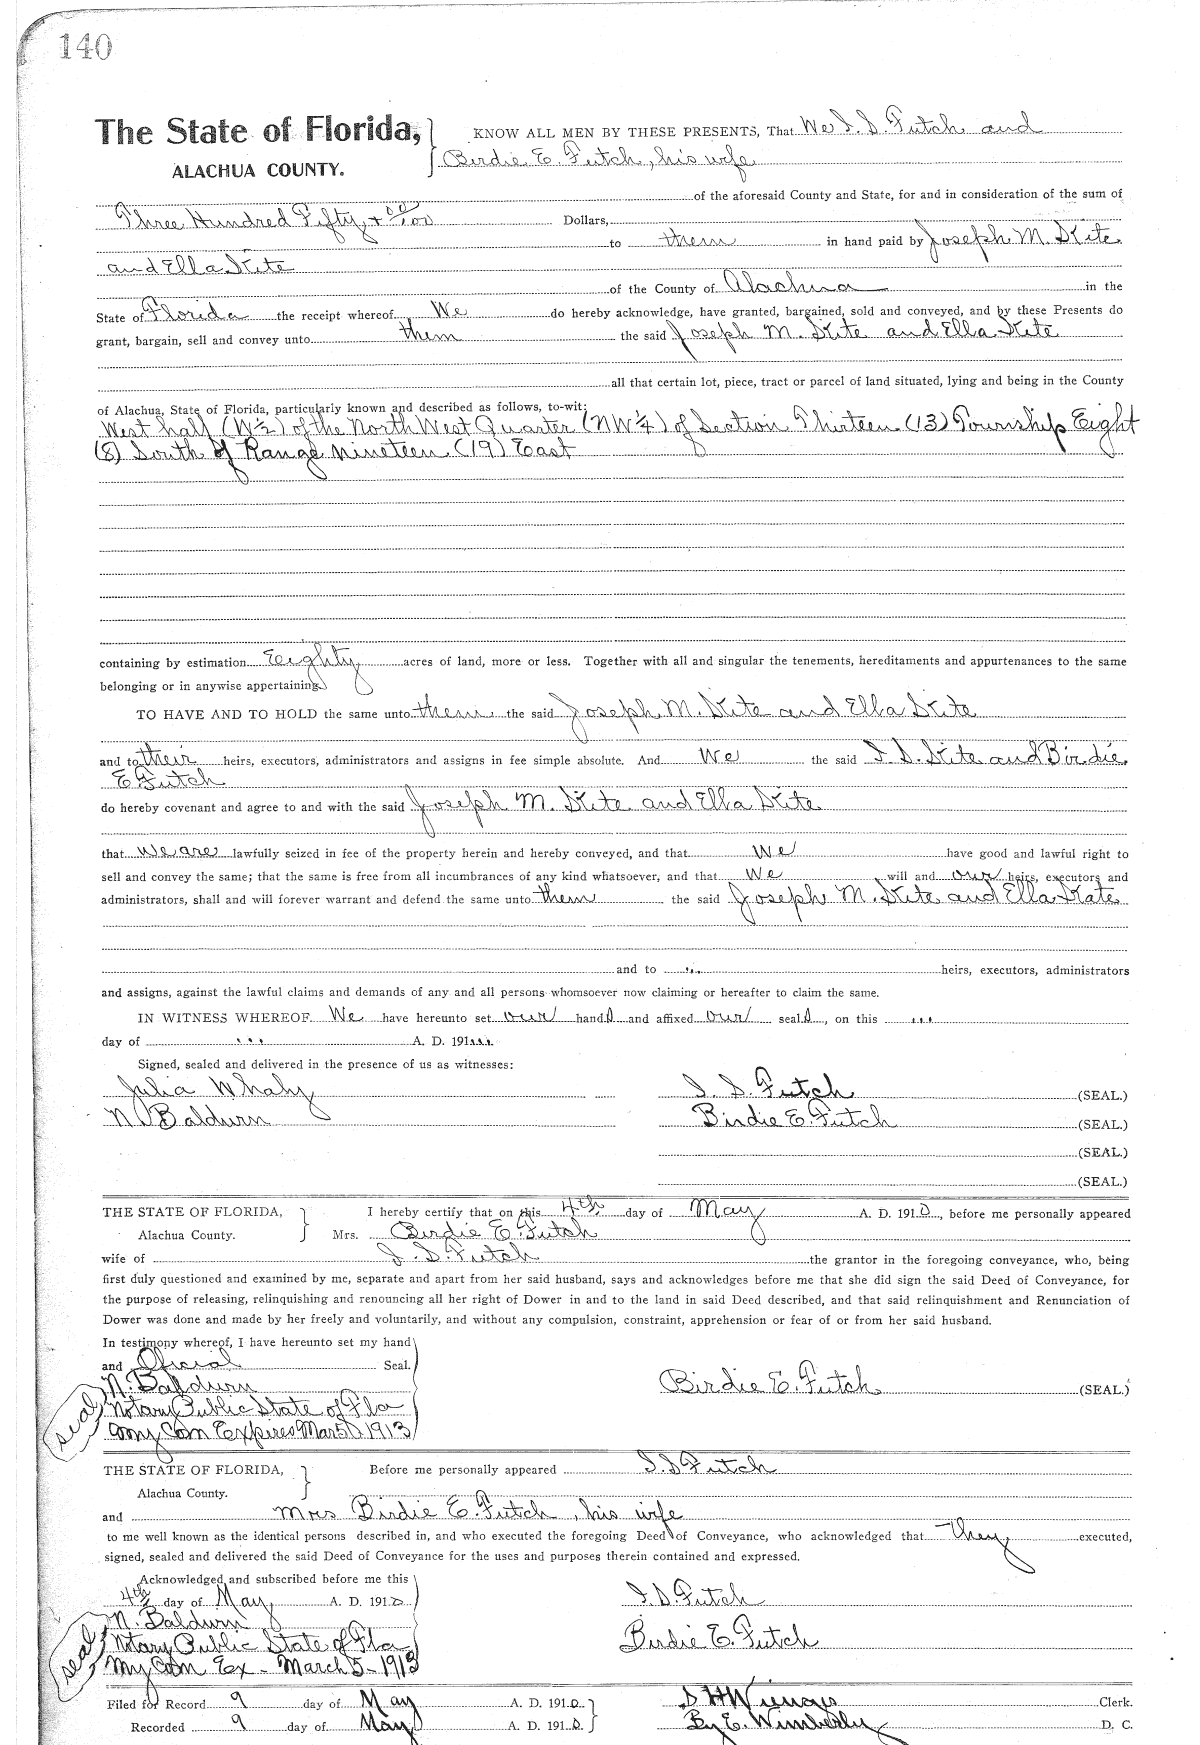 140
The State of Florida, KNOW ALL MEN BY THESE PRESENTS, That We I. S. Futch and
ALACHUA COUNTY. Birdie E. Futch, his wife
of the aforesaid County and State, for and in consideration of the sum of
Three Hundred Fifty + 00/100 Dollars,
to them in hand paid by Joseph M. Kite
and Ella Kite
of the County of Alachua in the
State of Florida the receipt whereof We do hereby acknowledge, have granted, bargained, sold and conveyed, and by these Presents do
grant, bargain, sell and convey unto them the said Joseph M. Kite and Ella Kite
all that certain lot, piece, tract or parcel of land situated, lying and being in the County
of Alachua, State of Florida, particularly known and described as follows, to-wit:
West half (W½) of the North West Quarter (NW¼) of Section Thirteen (13) Township Eight
(8) South of Range nineteen (19) East
containing by estimation Eeighty acres of land, more or less. Together with all and singular the tenements, hereditaments and appurtenances to the same
belonging or in anywise appertaining.
TO HAVE AND TO HOLD the same unto them the said Joseph M. Kite and Ella Kite
and to their heirs, executors, administrators and assigns in fee simple absolute. And We the said I. S. Kite and Birdie
E Futch
do hereby covenant and agree to and with the said Joseph M. Kite and Ella Kite
that we are lawfully seized in fee of the property herein and hereby conveyed, and that We have good and lawful right to
sell and convey the same; that the same is free from all incumbrances of any kind whatsoever, and that We will and our heirs, executors and
administrators, shall and will forever warrant and defend the same unto them the said Joseph M. Kite and Ella Kate
and to ... heirs, executors, administrators
and assigns, against the lawful claims and demands of any and all persons whomsoever now claiming or hereafter to claim the same.
IN WITNESS WHEREOF We have hereunto set our hands and affixed our seals, on this ...
day of ... A. D. 191...
Signed, sealed and delivered in the presence of us as witnesses:
Julia Whaly I. S. Futch (SEAL.)
N. Baldwin Birdie E. Futch (SEAL.)
(SEAL.)
(SEAL.)
THE STATE OF FLORIDA, I hereby certify that on this 4th day of May A. D. 1910, before me personally appeared
Alachua County. Mrs. Birdie E. Futch
wife of I. S. Futch the grantor in the foregoing conveyance, who, being
first duly questioned and examined by me, separate and apart from her said husband, says and acknowledges before me that she did sign the said Deed of Conveyance, for
the purpose of releasing, relinquishing and renouncing all her right of Dower in and to the land in said Deed described, and that said relinquishment and Renunciation of
Dower was done and made by her freely and voluntarily, and without any compulsion, constraint, apprehension or fear of or from her said husband.
In testimony whereof, I have hereunto set my hand
and Oficial Seal.
N. Baldwin Birdie E. Futch (SEAL.)
Notary Public State of Fla
seal My Com Expires Mar 5 1913
THE STATE OF FLORIDA, Before me personally appeared I. S Futch
Alachua County.
and Mrs Birdie E. Futch, his wife
to me well known as the identical persons described in, and who executed the foregoing Deed of Conveyance, who acknowledged that They executed,
signed, sealed and delivered the said Deed of Conveyance for the uses and purposes therein contained and expressed.
Acknowledged and subscribed before me this
4th day of May A. D. 1910 I. S. Futch
N. Baldwin
Notary Public State of Fla Birdie E. Futch
seal My Com Ex - March 5 - 1913
Filed for Record 9 day of May A. D. 1910 S H Wienges Clerk.
Recorded 9 day of May A. D. 1910. By E. Wimberly D. C.